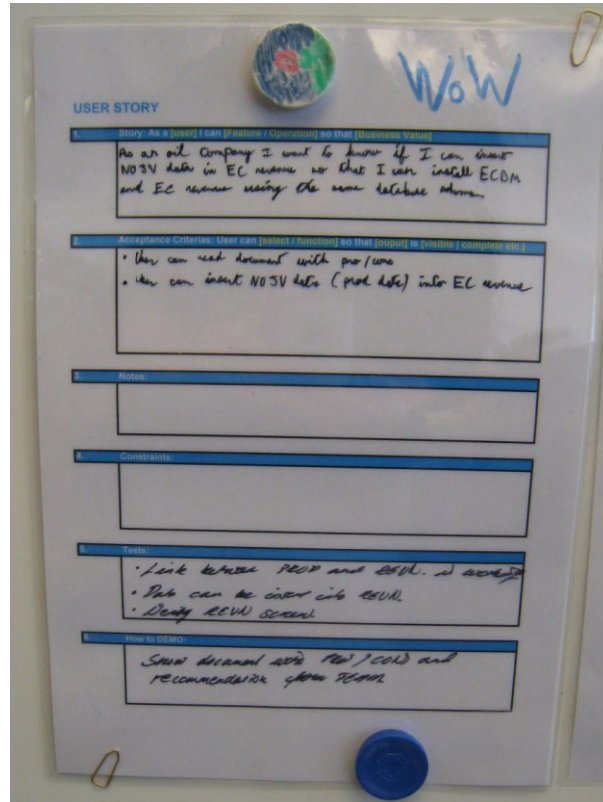 WoW
USER STORY
1. Story: As a [user] I can [Feature / Operation] so that [Business Value]
As an oil company I want to know if I can insert
NOJV data in EC revenue so that I can install ECDM
and EC revenue using the same database
2. Acceptance Criterias: User can [select / function] so that [ouput] is [visible / complete etc.]
• User can read document with pro/cons
• User can insert NOJV data (prod data) into EC revenue
3. Notes:
4. Constraints:
5. Tests:
• Link between PROD and REVN. is working
• Data can be insert into REVN.
• Verify REVN screens.
6. How to DEMO:
Show document with PRO / CONS and
recommendation from TEAM